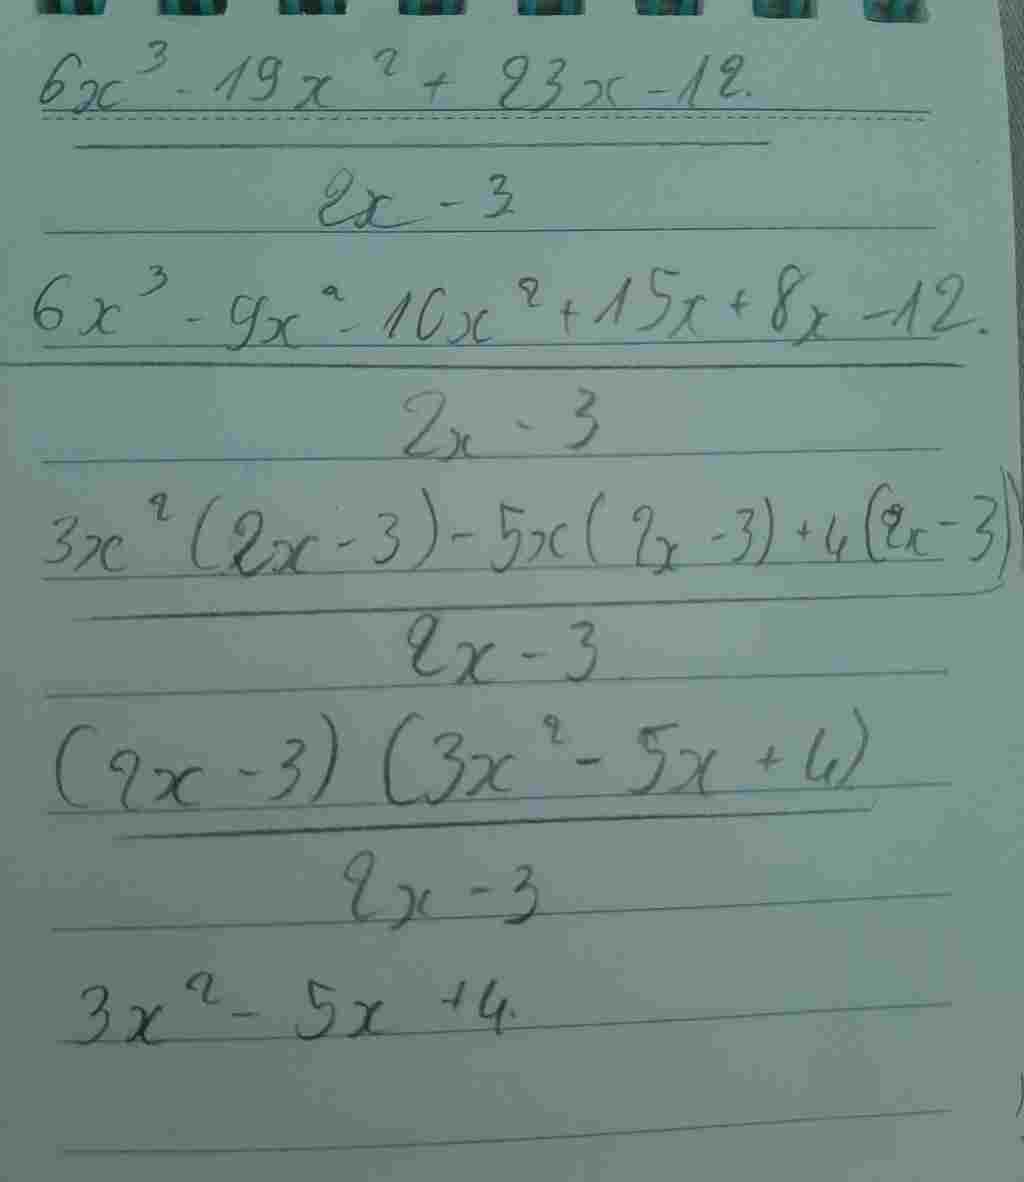 6x³ - 19x² + 23x - 12.
2x - 3
6x³ - 9x² - 10x² + 15x + 8x - 12.
2x - 3
3x² (2x - 3) - 5x (2x - 3) + 4 (2x - 3)
2x - 3
(2x - 3) (3x² - 5x + 4)
2x - 3
3x² - 5x + 4.